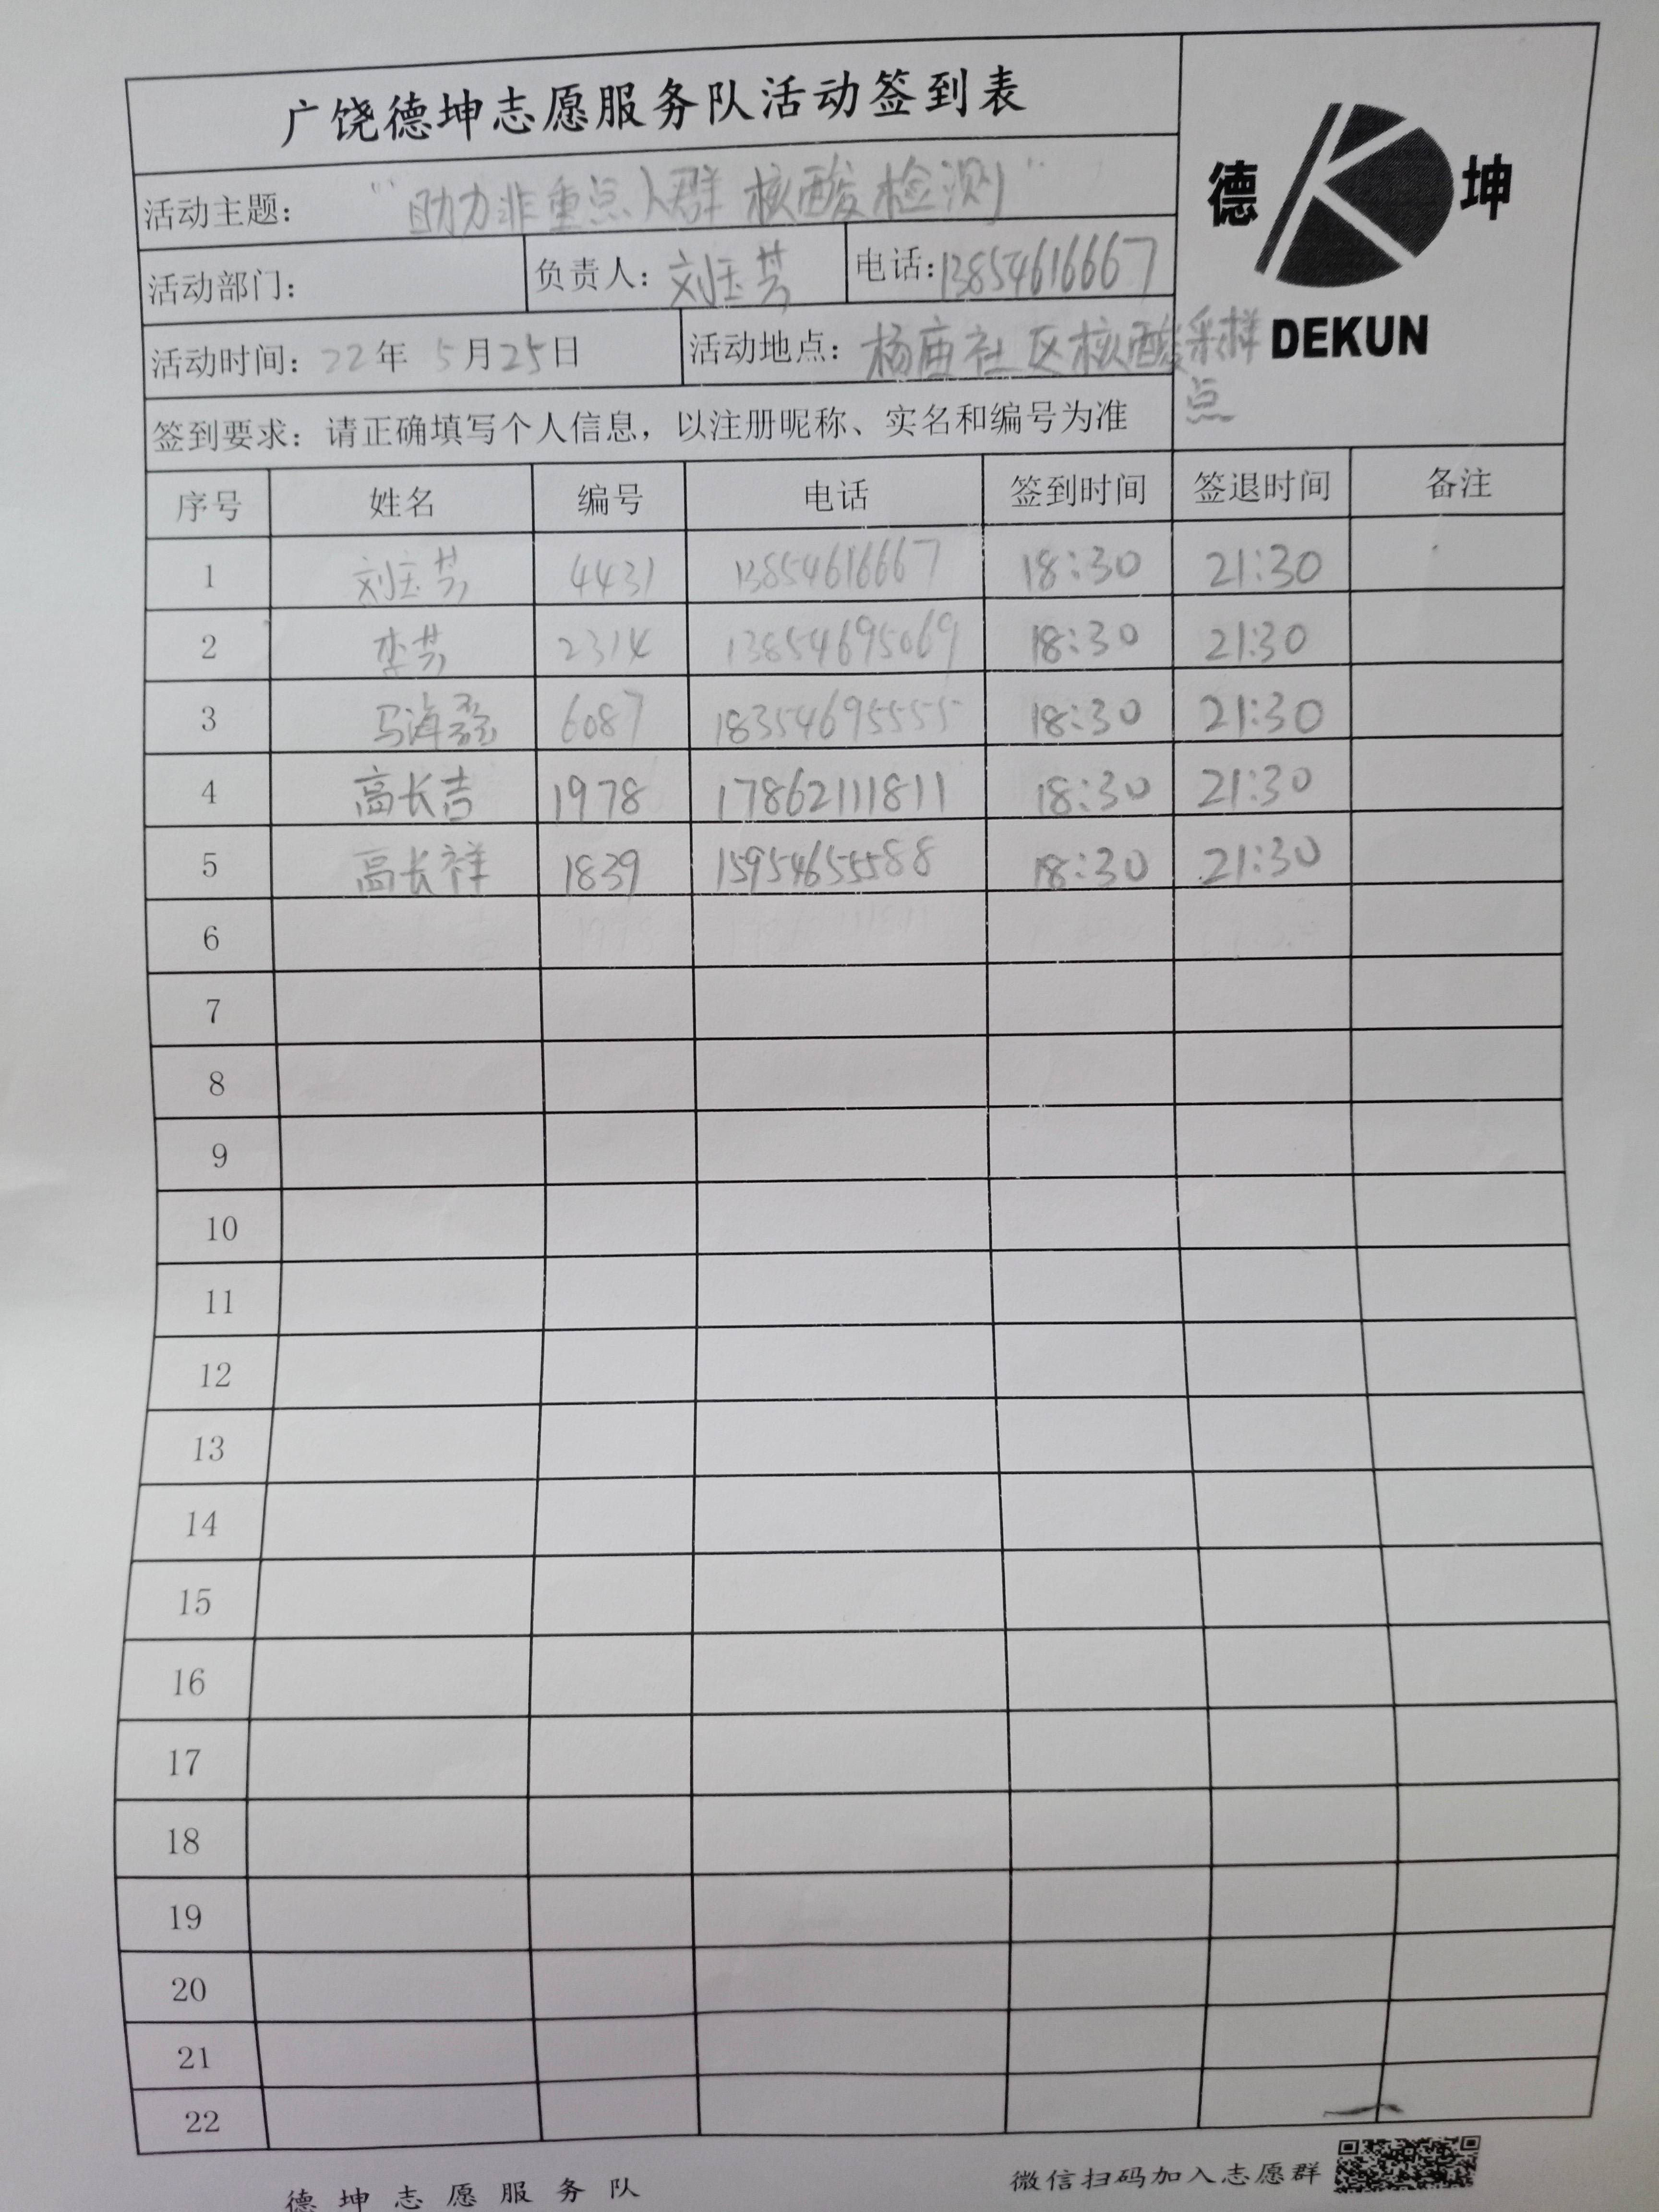 广饶德坤志愿服务队活动签到表
德 坤
DEKUN
活动主题： "助力非重点人群核酸检测"
活动部门： 负责人：刘玉芳 电话：13854616667
活动时间：22年 5月25日 活动地点：杨庙社区核酸采样
点
签到要求：请正确填写个人信息，以注册昵称、实名和编号为准
序号 姓名 编号 电话 签到时间 签退时间 备注
1 刘玉芳 4431 13854616667 18:30 21:30
2 李芳 2314 13854695069 18:30 21:30
3 马海 6087 18354695555 18:30 21:30
4 高长吉 1978 17862111811 18:30 21:30
5 高长祥 1839 15954655588 18:30 21:30
6
7
8
9
10
11
12
13
14
15
16
17
18
19
20
21
22
德坤志愿服务队 微信扫码加入志愿群